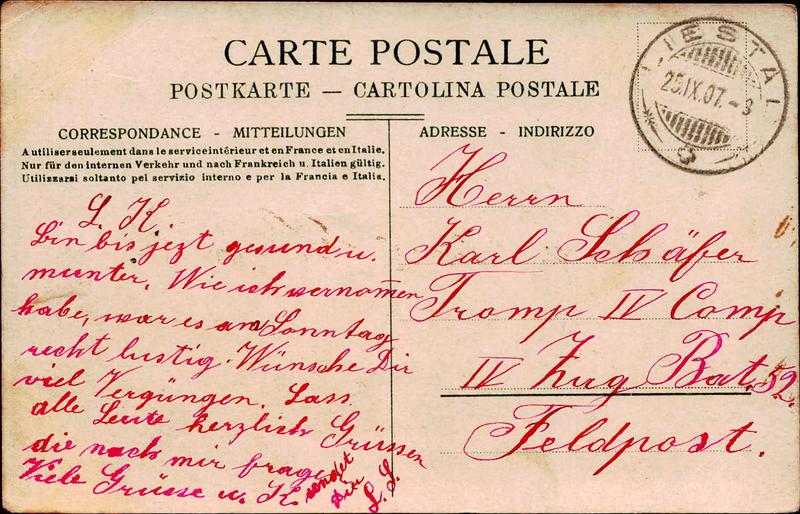 CARTE POSTALE
POSTKARTE — CARTOLINA POSTALE
CORRESPONDANCE - MITTEILUNGEN
A utiliser seulement dans le service intérieur et en France et en Italie.
Nur für den internen Verkehr und nach Frankreich u. Italien gültig.
Utilizzarsi soltanto pel servizio interno e per la Francia e Italia.
L. K.
Bin bis jezt gesund u.
munter. Wie ich vernom̅en
habe, war es am Sonntag
recht lustig. Wünsche Dir
viel Vergüngen. Lass
alle Leute herzlich Grüssen
die nach mir fragen
Viele Grüsse u. K. sendet
Dir
L. S.
ADRESSE - INDIRIZZO
Herrn
Karl Schäfer
Tromp IV Comp
IV Zug Bat. 52.
Feldpost.
LIESTAL
25.IX.07.-3